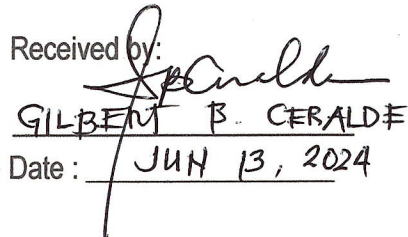 Received by:
GILBERT B. CERALDE
Date : JUN 13, 2024